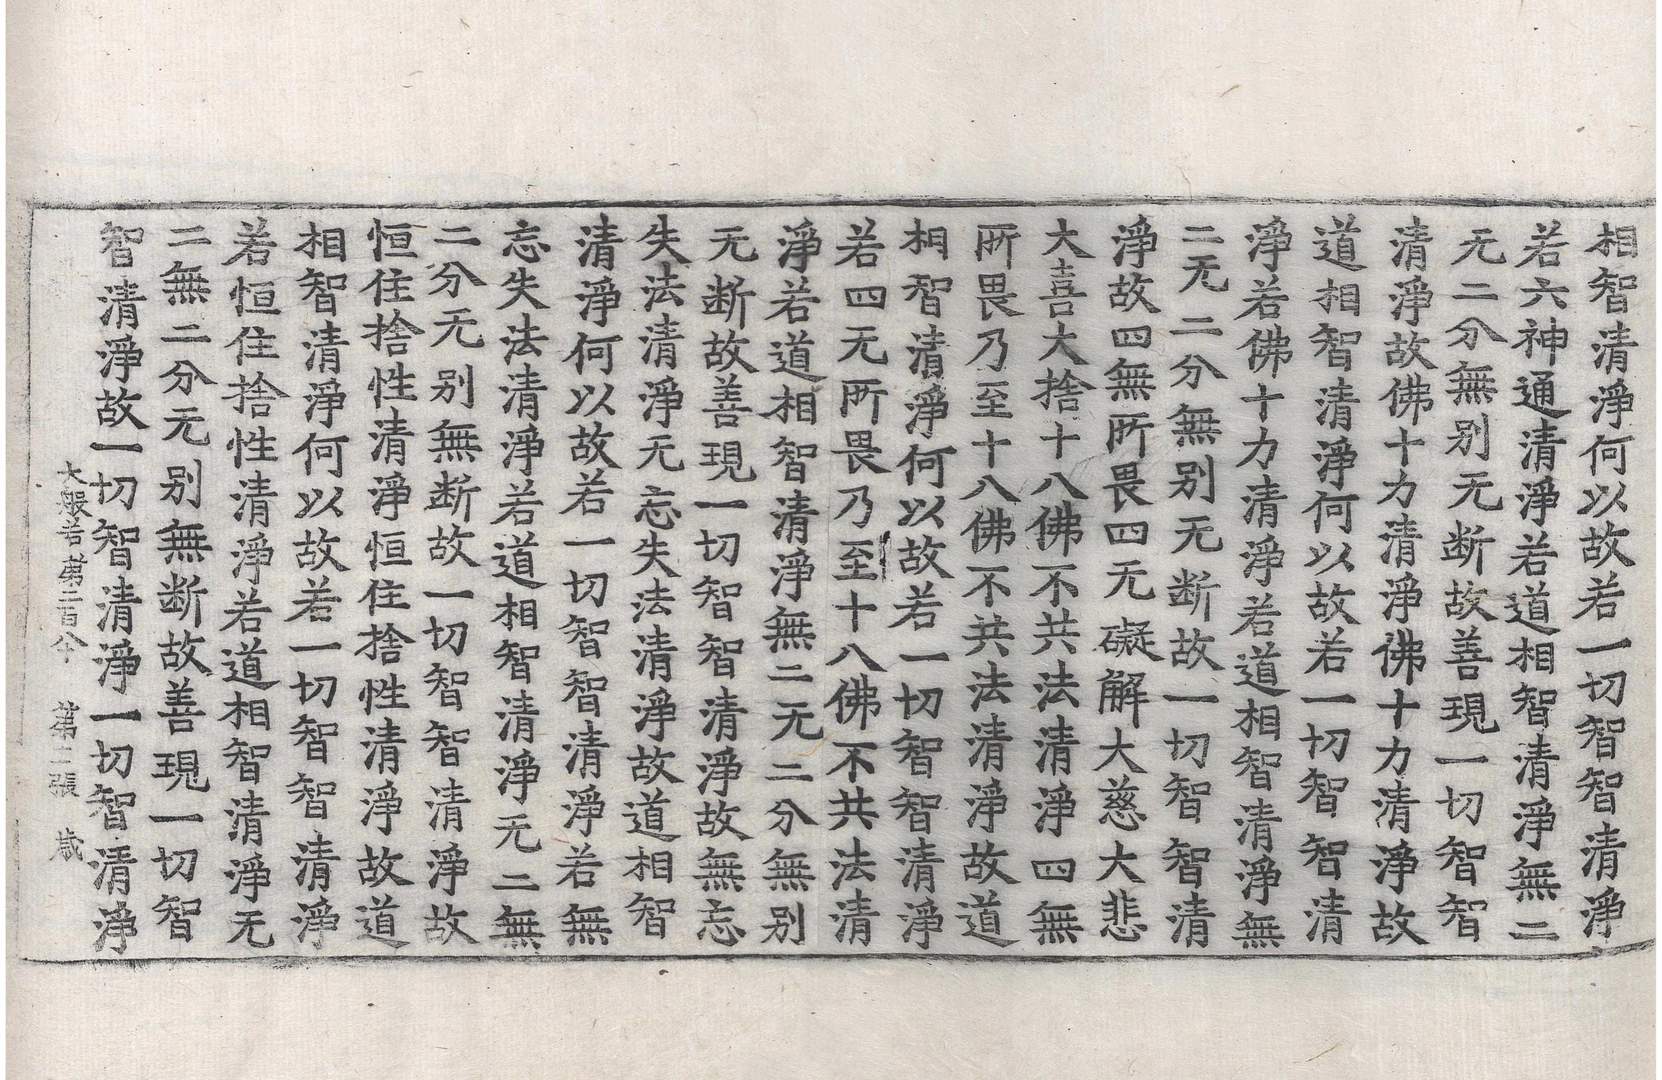 相智清淨何以故若一切智智清淨
若六神通清淨若道相智清淨無二
无二分無别无断故善現一切智智
清淨故佛十力清淨佛十力清淨故
道相智清淨何以故若一切智智清
淨若佛十力清淨若道相智清淨無
二无二分無别无断故一切智智清
淨故四無所畏四无礙解大慈大悲
大喜大捨十八佛不共法清淨四無
所畏乃至十八佛不共法清淨故道
相智清淨何以故若一切智智清淨
若四无所畏乃至十八佛不共法清
淨若道相智清淨無二无二分無别
无断故善現一切智智清淨故無忘
失法清淨无忘失法清淨故道相智
清淨何以故若一切智智清淨若無
忘失法清淨若道相智清淨无二無
二分无别無断故一切智智清淨故
恒住捨性清淨恒住捨性清淨故道
相智清淨何以故若一切智智清淨
若恒住捨性清淨若道相智清淨无
二無二分无别無断故善現一切智
智清淨故一切智清淨一切智清淨
大般若第二百 第二張